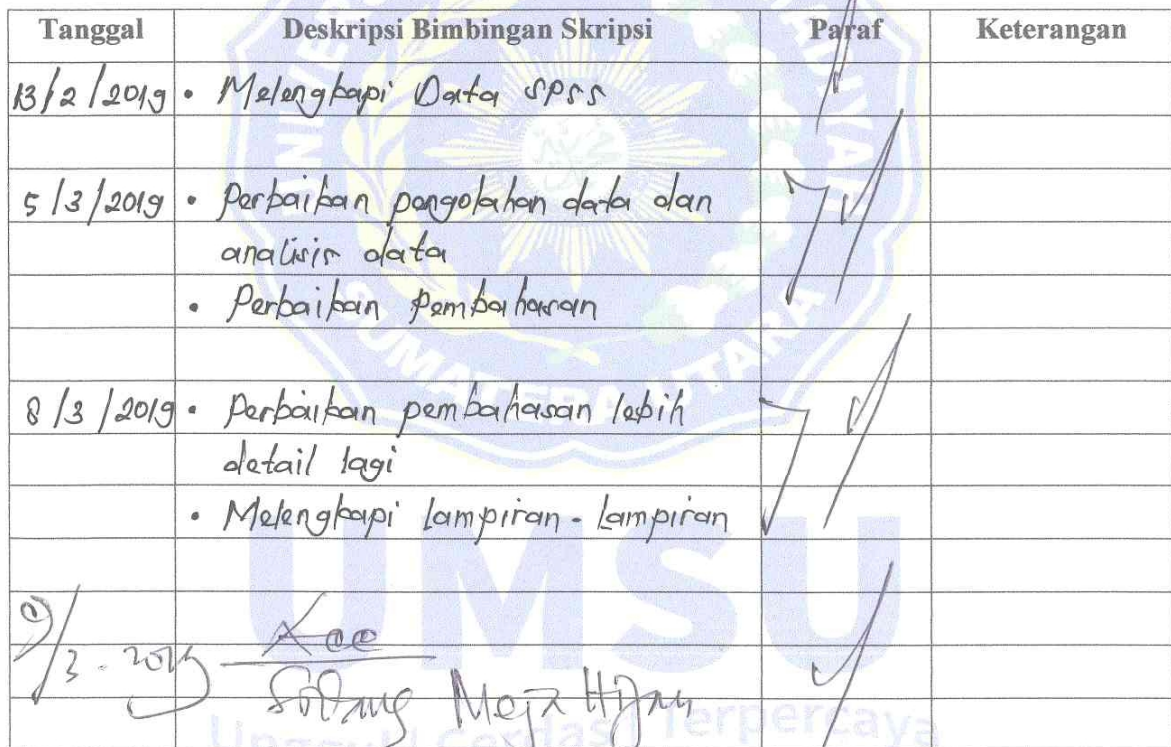 Tanggal Deskripsi Bimbingan Skripsi Paraf Keterangan
13/2/2019 • Melengkapi Data SPSS
5/3/2019 • Perbaikan pengolahan data dan
analisis data
• Perbaikan Pembahasan
8/3/2019 • Perbaikan pembahasan lebih
detail lagi
• Melengkapi lampiran-lampiran
9/3-2019 Acc
Sidang Meja Hijau
SUMATERA UTARA
UMSU
Unggul | Cerdas | Terpercaya